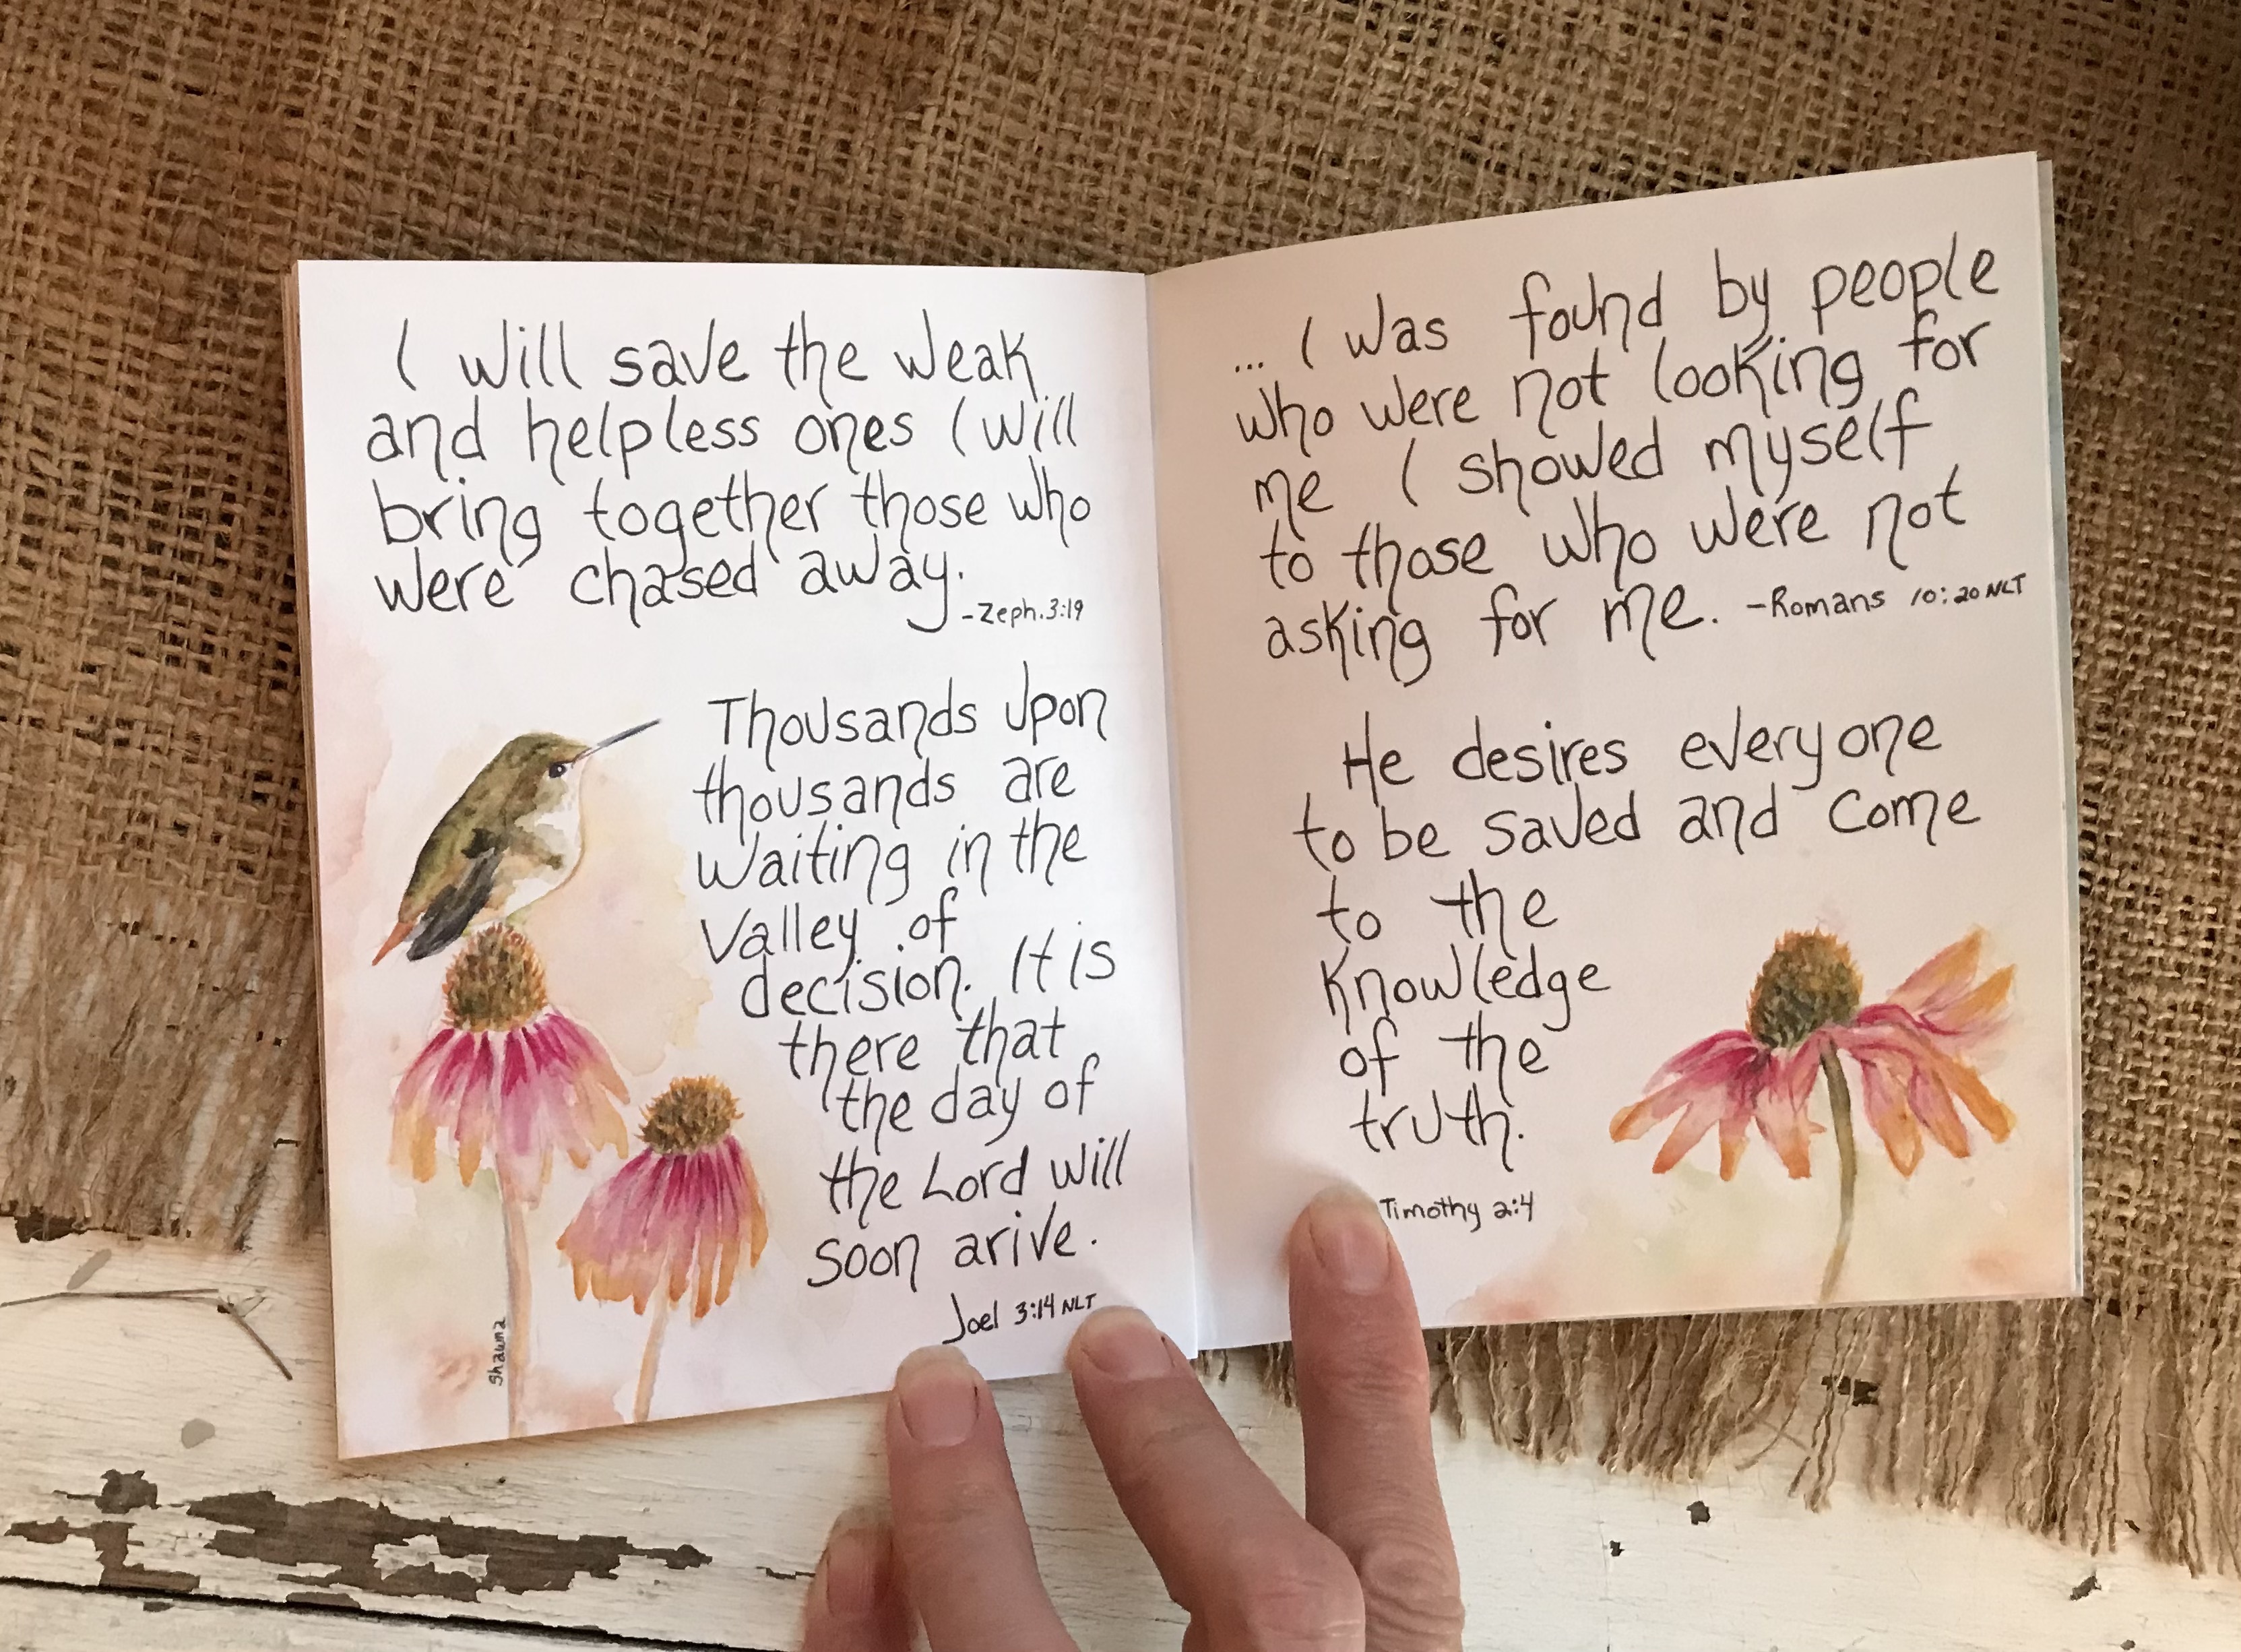 I will save the weak
and helpless ones I will
bring together those who
were chased away.
-Zeph. 3:19
Thousands upon
thousands are
waiting in the
Valley of
decision. It is
there that
the day of
the Lord will
soon arive.
Joel 3:14 NLT
Shawna
... I was found by people
who were not looking for
me I showed myself
to those who were not
asking for me. -Romans 10:20 NLT
He desires everyone
to be saved and come
to the
knowledge
of the
truth.
Timothy 2:4